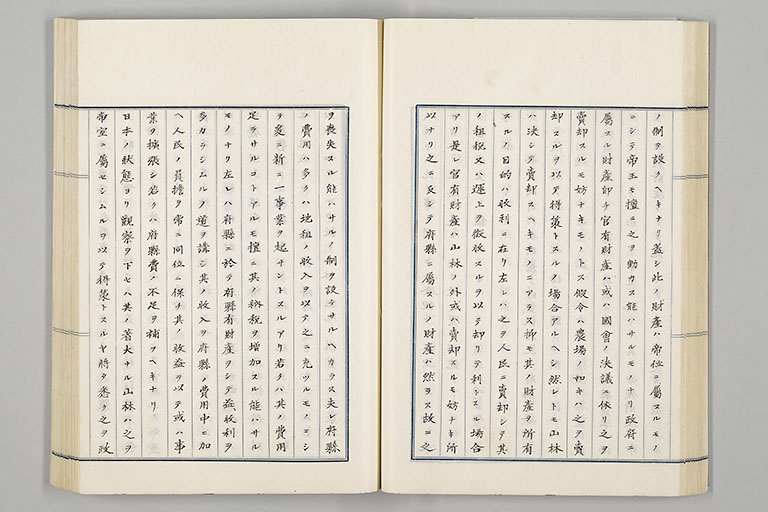 ノ制ヲ設クヘキナリ蓋シ此ノ財產ハ帝位ニ屬スルモノ
ニシテ帝王モ擅ニ之ヲ動カス能ハサルモノナリ政府ニ
屬スル財產卽チ官有財產ハ或ハ國會ノ決議ニ依リ之ヲ
賣却スルモ妨ナキモノトス假令ハ農場ノ如キハ之ヲ賣
却スルヲ以テ得策トスルノ場合アルヘシ然レトモ山林
ハ決シテ賣却スヘキモノニアラス抑モ其ノ財產ヲ所有
スルノ目的ハ收利ニ在リ左レハ之ヲ人民ニ賣却シテ其
ノ租税又ハ運上ヲ徵收スルヲ以テ却リテ利トスル場合
アリ是レ官有財產ハ山林ノ外或ハ賣却スルモ妨ナキ所
以ナリ之ニ反シテ府縣ニ屬スルノ財產ハ然ラス故ニ之
ヲ喪失スル能ハサルノ制ヲ設ケサルヘカラス夫レ府縣
ノ費用ハ多クハ地租ノ收入ヲ以テ之ニ充ツルモノニシ
テ爰ニ新ニ一事業ヲ起サントスルアリ若クハ其ノ費用
足ラサルコトアルモ擅ニ其ノ納税ヲ增加スル能ハサル
モノナリ左レハ府縣ニ於テ府縣有財產ヲシテ益收利ヲ
多カラシムルノ道ヲ講シ其ノ收入ヲ府縣ノ費用中ニ加
ヘ人民ノ負擔ヲ常ニ同位ニ保チ其ノ收益ヲ以テ或ハ事
業ヲ擴張シ若クハ府縣費ノ不足ヲ補フヘキナリ
日本ノ狀態ヨリ觀察ヲ下セハ其ノ著大ナル山林ハ之ヲ
帝室ニ屬セシムルヲ以テ得策トスルヤ將タ悉ク之ヲ政